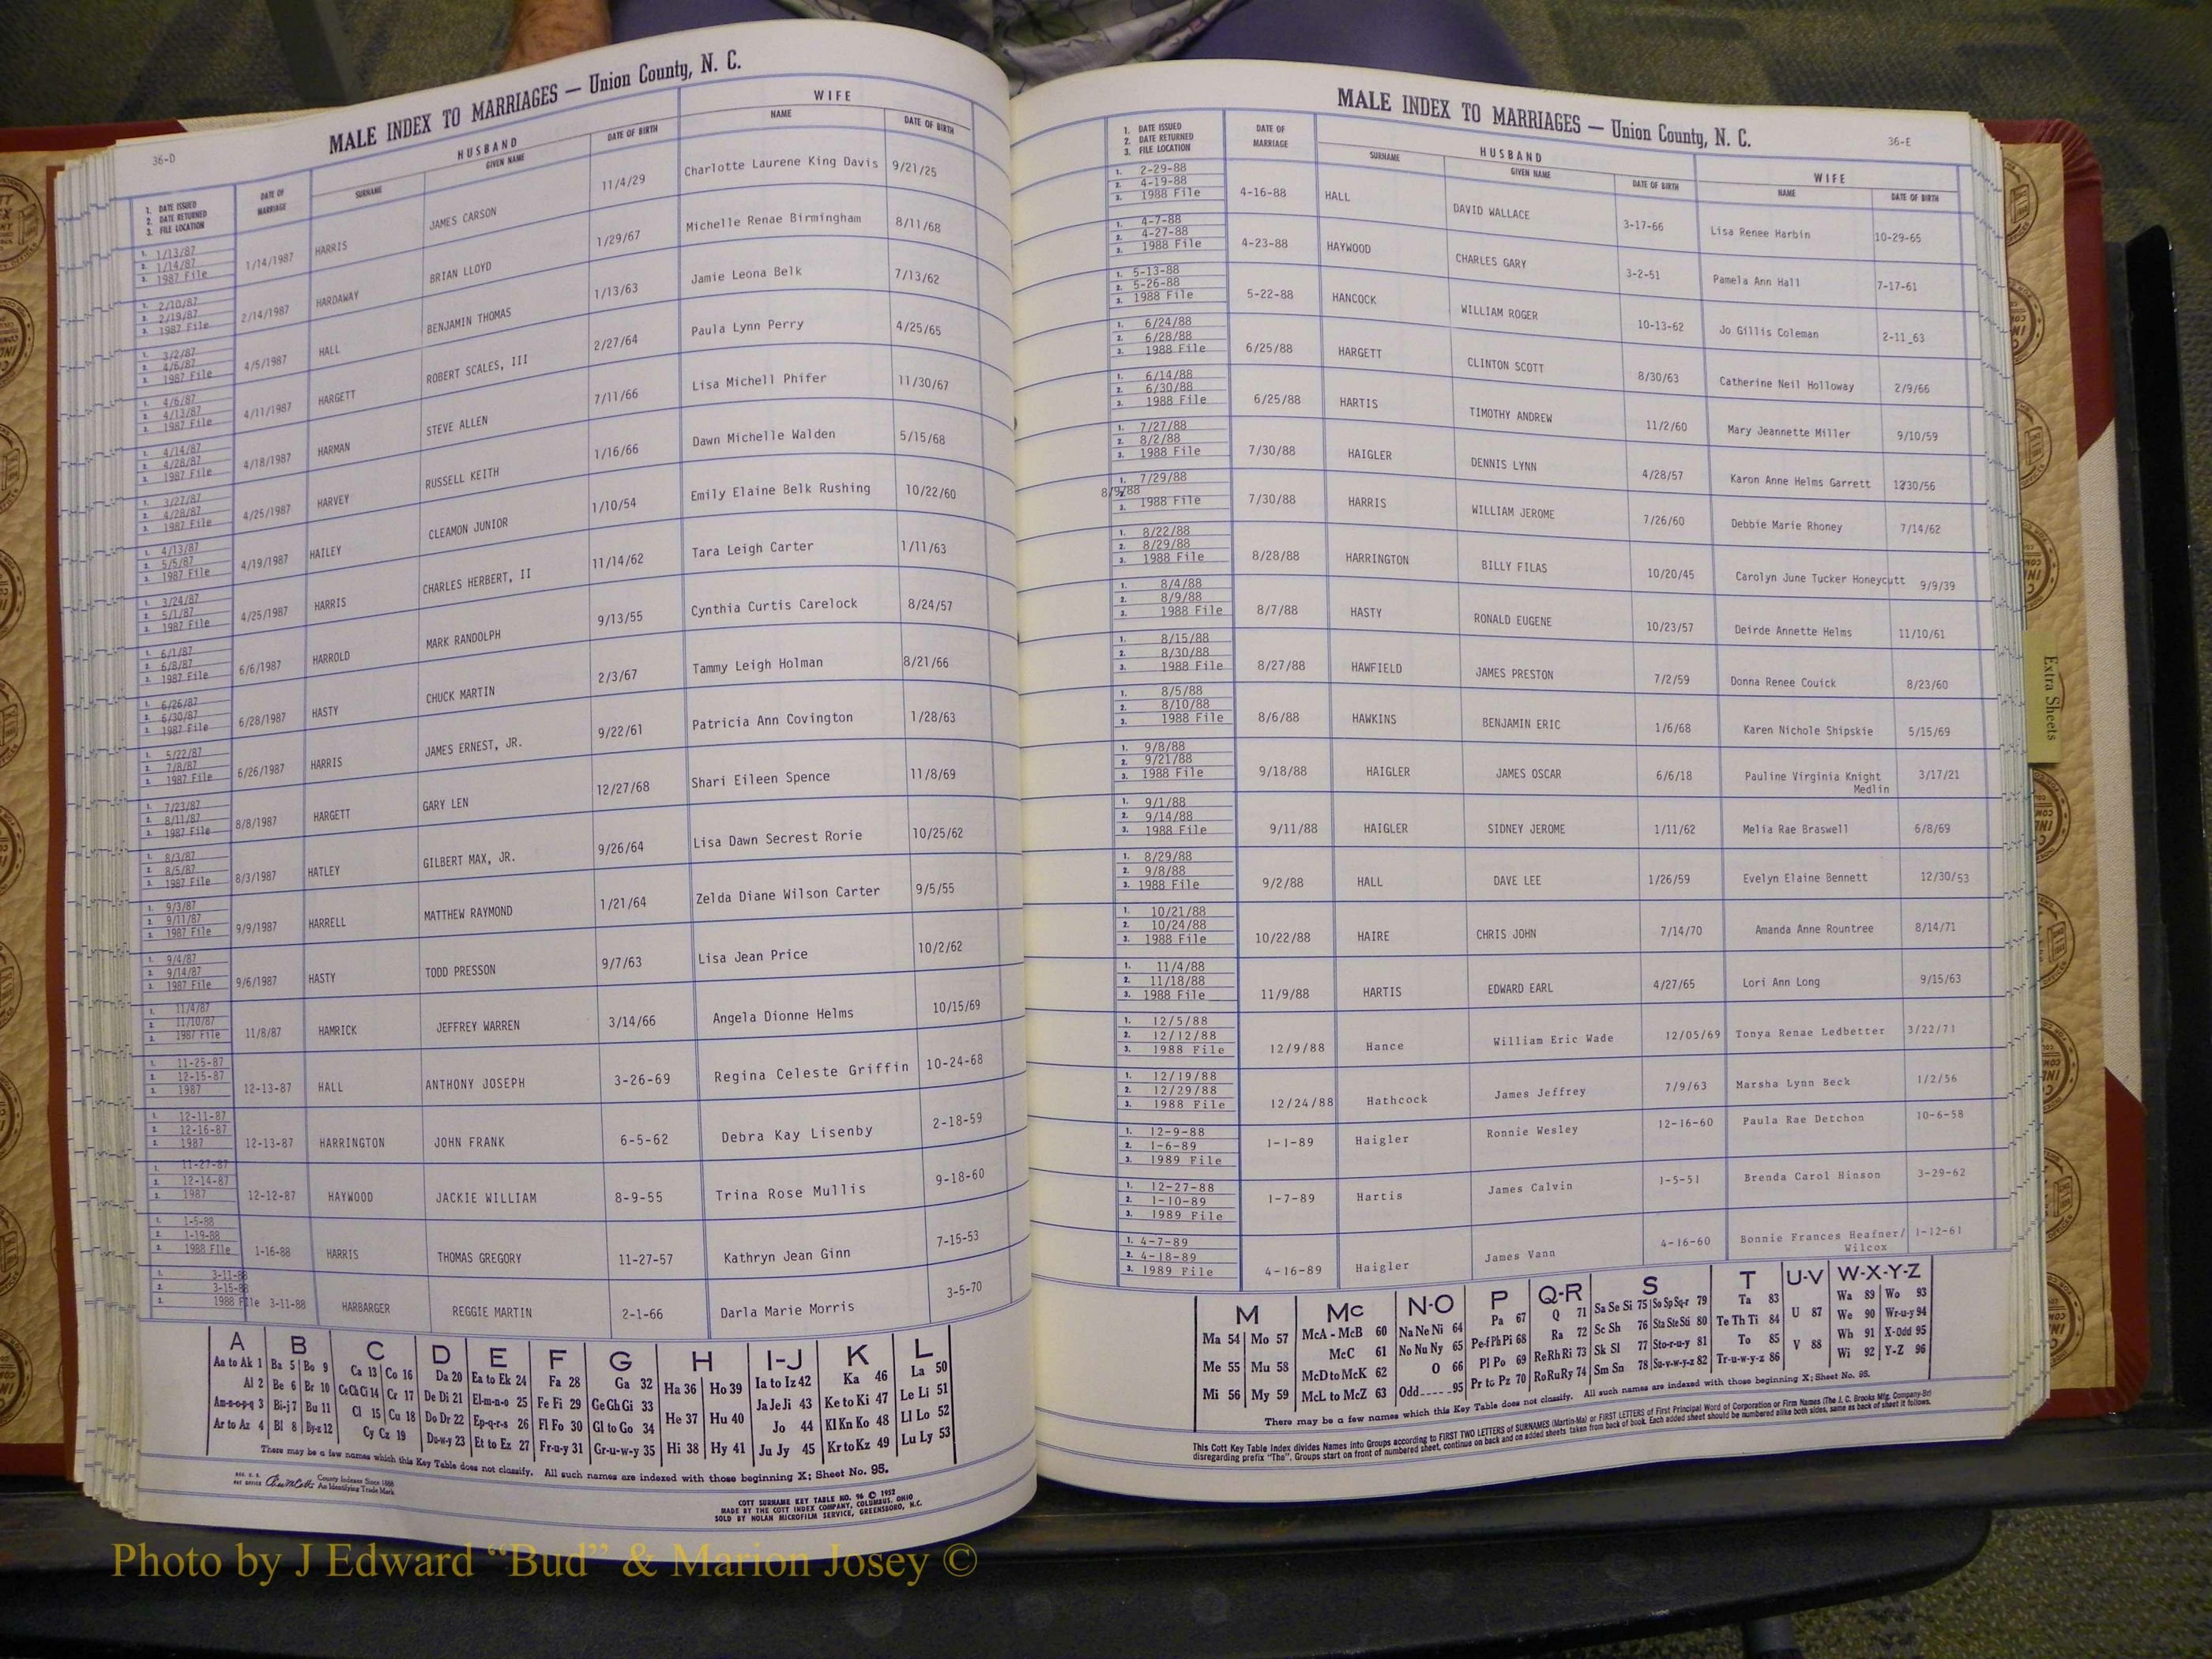 36-D
MALE INDEX TO MARRIAGES — Union County, N. C.
1. DATE ISSUED 2. DATE RETURNED 3. FILE LOCATION
DATE OF MARRIAGE
HUSBAND
SURNAME GIVEN NAME DATE OF BIRTH
WIFE
NAME DATE OF BIRTH
1. 1/13/87 2. 1/14/87 3. 1987 File 1/14/1987 HARRIS JAMES CARSON 11/4/29 Charlotte Laurene King Davis 9/21/25
1. 2/10/87 2. 2/19/87 3. 1987 File 2/14/1987 HARDAWAY BRIAN LLOYD 1/29/67 Michelle Renae Birmingham 8/11/68
1. 3/2/87 2. 4/6/87 3. 1987 File 4/5/1987 HALL BENJAMIN THOMAS 1/13/63 Jamie Leona Belk 7/13/62
1. 4/6/87 2. 4/13/87 3. 1987 File 4/11/1987 HARGETT ROBERT SCALES, III 2/27/64 Paula Lynn Perry 4/25/65
1. 4/14/87 2. 4/28/87 3. 1987 File 4/18/1987 HARMAN STEVE ALLEN 7/11/66 Lisa Michell Phifer 11/30/67
1. 3/27/87 2. 4/28/87 3. 1987 File 4/25/1987 HARVEY RUSSELL KEITH 1/16/66 Dawn Michelle Walden 5/15/68
1. 4/13/87 2. 5/5/87 3. 1987 File 4/19/1987 HAILEY CLEAMON JUNIOR 1/10/54 Emily Elaine Belk Rushing 10/22/60
1. 3/24/87 2. 5/1/87 3. 1987 File 4/25/1987 HARRIS CHARLES HERBERT, II 11/14/62 Tara Leigh Carter 1/11/63
1. 6/1/87 2. 6/8/87 3. 1987 File 6/6/1987 HARROLD MARK RANDOLPH 9/13/55 Cynthia Curtis Carelock 8/24/57
1. 6/26/87 2. 6/30/87 3. 1987 File 6/28/1987 HASTY CHUCK MARTIN 2/3/67 Tammy Leigh Holman 8/21/66
1. 5/22/87 2. 7/8/87 3. 1987 File 6/26/1987 HARRIS JAMES ERNEST, JR. 9/22/61 Patricia Ann Covington 1/28/63
1. 7/23/87 2. 8/11/87 3. 1987 File 8/8/1987 HARGETT GARY LEN 12/27/68 Shari Eileen Spence 11/8/69
1. 8/3/87 2. 8/5/87 3. 1987 File 8/3/1987 HATLEY GILBERT MAX, JR. 9/26/64 Lisa Dawn Secrest Rorie 10/25/62
1. 9/3/87 2. 9/11/87 3. 1987 File 9/9/1987 HARRELL MATTHEW RAYMOND 1/21/64 Zelda Diane Wilson Carter 9/5/55
1. 9/4/87 2. 9/14/87 3. 1987 File 9/6/1987 HASTY TODD PRESSON 9/7/63 Lisa Jean Price 10/2/62
1. 11/4/87 2. 11/10/87 3. 1987 File 11/8/87 HAMRICK JEFFREY WARREN 3/14/66 Angela Dionne Helms 10/15/69
1. 11-25-87 2. 12-15-87 3. 1987 12-13-87 HALL ANTHONY JOSEPH 3-26-69 Regina Celeste Griffin 10-24-68
1. 12-11-87 2. 12-16-87 3. 1987 12-13-87 HARRINGTON JOHN FRANK 6-5-62 Debra Kay Lisenby 2-18-59
1. 11-27-87 2. 12-14-87 3. 1987 12-12-87 HAYWOOD JACKIE WILLIAM 8-9-55 Trina Rose Mullis 9-18-60
1. 1-5-88 2. 1-19-88 3. 1988 File 1-16-88 HARRIS THOMAS GREGORY 11-27-57 Kathryn Jean Ginn 7-15-53
1. 3-11-88 2. 3-15-88 3. 1988 File 3-11-88 HARBARGER REGGIE MARTIN 2-1-66 Darla Marie Morris 3-5-70
A B C D E F G H I-J K L
Aa to Ak 1 Ba 5 Bo 9 Ca 13 Co 16 Da 20 Ea to Ek 24 Fa 28 Ga 32 Ha 36 Ho 39 Ia to Iz 42 Ka 46 La 50
Al 2 Be 6 Br 10 Ce Ch Ci 14 Cr 17 De Di 21 El-m-n-o 25 Fe Fi 29 Ge Gh Gi 33 He 37 Hu 40 Ja Je Ji 43 Ke to Ki 47 Le Li 51
Am-n-o-p-q 3 Bi-j 7 Bu 11 Cl 15 Cu 18 Do Dr 22 Ep-q-r-s 26 Fl Fo 30 Gl to Go 34 Hi 38 Hy 41 Jo 44 Kl Kn Ko 48 Ll Lo 52
Ar to Az 4 Bl 8 By-z 12 Cy Cz 19 Du-w-y 23 Et to Ez 27 Fr-u-y 31 Gr-u-w-y 35 Ju Jy 45 Kr to Kz 49 Lu Ly 53
There may be a few names which this Key Table does not classify. All such names are indexed with those beginning X; Sheet No. 95.
County Indexes Since 1888
An Identifying Trade Mark
COTT SURNAME KEY TABLE NO. 96 © 1952
MADE BY THE COTT INDEX COMPANY, COLUMBUS, OHIO
SOLD BY NOLAN MICROFILM SERVICE, GREENSBORO, N.C.
MALE INDEX TO MARRIAGES — Union County, N. C.
36-E
1. DATE ISSUED 2. DATE RETURNED 3. FILE LOCATION
DATE OF MARRIAGE
HUSBAND
SURNAME GIVEN NAME DATE OF BIRTH
WIFE
NAME DATE OF BIRTH
1. 2-29-88 2. 4-19-88 3. 1988 File 4-16-88 HALL DAVID WALLACE 3-17-66 Lisa Renee Harbin 10-29-65
1. 4-7-88 2. 4-27-88 3. 1988 File 4-23-88 HAYWOOD CHARLES GARY 3-2-51 Pamela Ann Hall 7-17-61
1. 5-13-88 2. 5-26-88 3. 1988 File 5-22-88 HANCOCK WILLIAM ROGER 10-13-62 Jo Gillis Coleman 2-11_63
1. 6/24/88 2. 6/28/88 3. 1988 File 6/25/88 HARGETT CLINTON SCOTT 8/30/63 Catherine Neil Holloway 2/9/66
1. 6/14/88 2. 6/30/88 3. 1988 File 6/25/88 HARTIS TIMOTHY ANDREW 11/2/60 Mary Jeannette Miller 9/10/59
1. 7/27/88 2. 8/2/88 3. 1988 File 7/30/88 HAIGLER DENNIS LYNN 4/28/57 Karon Anne Helms Garrett 12/30/56
1. 7/29/88 2. 8/9/88 3. 1988 File 7/30/88 HARRIS WILLIAM JEROME 7/26/60 Debbie Marie Rhoney 7/14/62
1. 8/22/88 2. 8/29/88 3. 1988 File 8/28/88 HARRINGTON BILLY FILAS 10/20/45 Carolyn June Tucker Honeycutt 9/9/39
1. 8/4/88 2. 8/9/88 3. 1988 File 8/7/88 HASTY RONALD EUGENE 10/23/57 Deirde Annette Helms 11/10/61
1. 8/15/88 2. 8/30/88 3. 1988 File 8/27/88 HAWFIELD JAMES PRESTON 7/2/59 Donna Renee Couick 8/23/60
1. 8/5/88 2. 8/10/88 3. 1988 File 8/6/88 HAWKINS BENJAMIN ERIC 1/6/68 Karen Nichole Shipskie 5/15/69
1. 9/8/88 2. 9/21/88 3. 1988 File 9/18/88 HAIGLER JAMES OSCAR 6/6/18 Pauline Virginia Knight Medlin 3/17/21
1. 9/1/88 2. 9/14/88 3. 1988 File 9/11/88 HAIGLER SIDNEY JEROME 1/11/62 Melia Rae Braswell 6/8/69
1. 8/29/88 2. 9/8/88 3. 1988 File 9/2/88 HALL DAVE LEE 1/26/59 Evelyn Elaine Bennett 12/30/53
1. 10/21/88 2. 10/24/88 3. 1988 File 10/22/88 HAIRE CHRIS JOHN 7/14/70 Amanda Anne Rountree 8/14/71
1. 11/4/88 2. 11/18/88 3. 1988 File 11/9/88 HARTIS EDWARD EARL 4/27/65 Lori Ann Long 9/15/63
1. 12/5/88 2. 12/12/88 3. 1988 File 12/9/88 Hance William Eric Wade 12/05/69 Tonya Renae Ledbetter 3/22/71
1. 12/19/88 2. 12/29/88 3. 1988 File 12/24/88 Hathcock James Jeffrey 7/9/63 Marsha Lynn Beck 1/2/56
1. 12-9-88 2. 1-6-89 3. 1989 File 1-1-89 Haigler Ronnie Wesley 12-16-60 Paula Rae Detchon 10-6-58
1. 12-27-88 2. 1-10-89 3. 1989 File 1-7-89 Hartis James Calvin 1-5-51 Brenda Carol Hinson 3-29-62
1. 4-7-89 2. 4-18-89 3. 1989 File 4-16-89 Haigler James Vann 4-16-60 Bonnie Frances Heafner/ Wilcox 1-12-61
M Mc N-O P Q-R S T U-V W-X-Y-Z
Ma 54 Mo 57 McA - McB 60 Na Ne Ni 64 Pa 67 Q 71 Sa Se Si 75 So Sp Sq-r 79 Ta 83 U 87 Wa 89 Wo 93
Me 55 Mu 58 McC 61 No Nu Ny 65 Pe-f Ph Pi 68 Ra 72 Sc Sh 76 Sta Ste Sti 80 Te Th Ti 84 V 88 We 90 Wr-u-y 94
Mi 56 My 59 McD to McK 62 O 66 Pl Po 69 Re Rh Ri 73 Sk Sl 77 Sto-r-u-y 81 To 85 Wh 91 X-Odd 95
McL to McZ 63 Odd 95 Pr to Pz 70 Ro Ru Ry 74 Sm Sn 78 Su-v-w-y-z 82 Tr-u-w-y-z 86 Wi 92 Y-Z 96
There may be a few names which this Key Table does not classify. All such names are indexed with those beginning X; Sheet No. 95.
This Cott Key Table Index divides Names into Groups according to FIRST TWO LETTERS of SURNAMES (Martin-Ma) or FIRST LETTERS of First Principal Word of Corporation or Firm Names (The J. C. Brooks Mfg. Company-Br)
disregarding prefix "The". Groups start on front of numbered sheet, continue on back and on added sheets taken from back of book. Each added sheet should be numbered alike both sides, same as back of sheet it follows.
Extra Sheets
Photo by J Edward “Bud” & Marion Josey ©